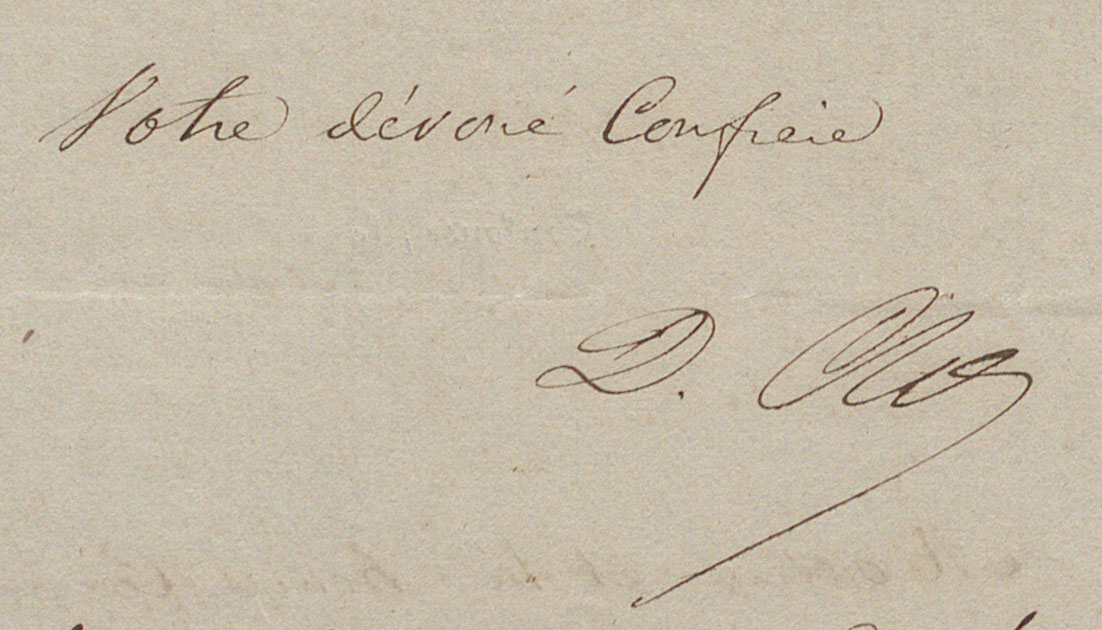 Votre dévoué Confrère
D. Clos